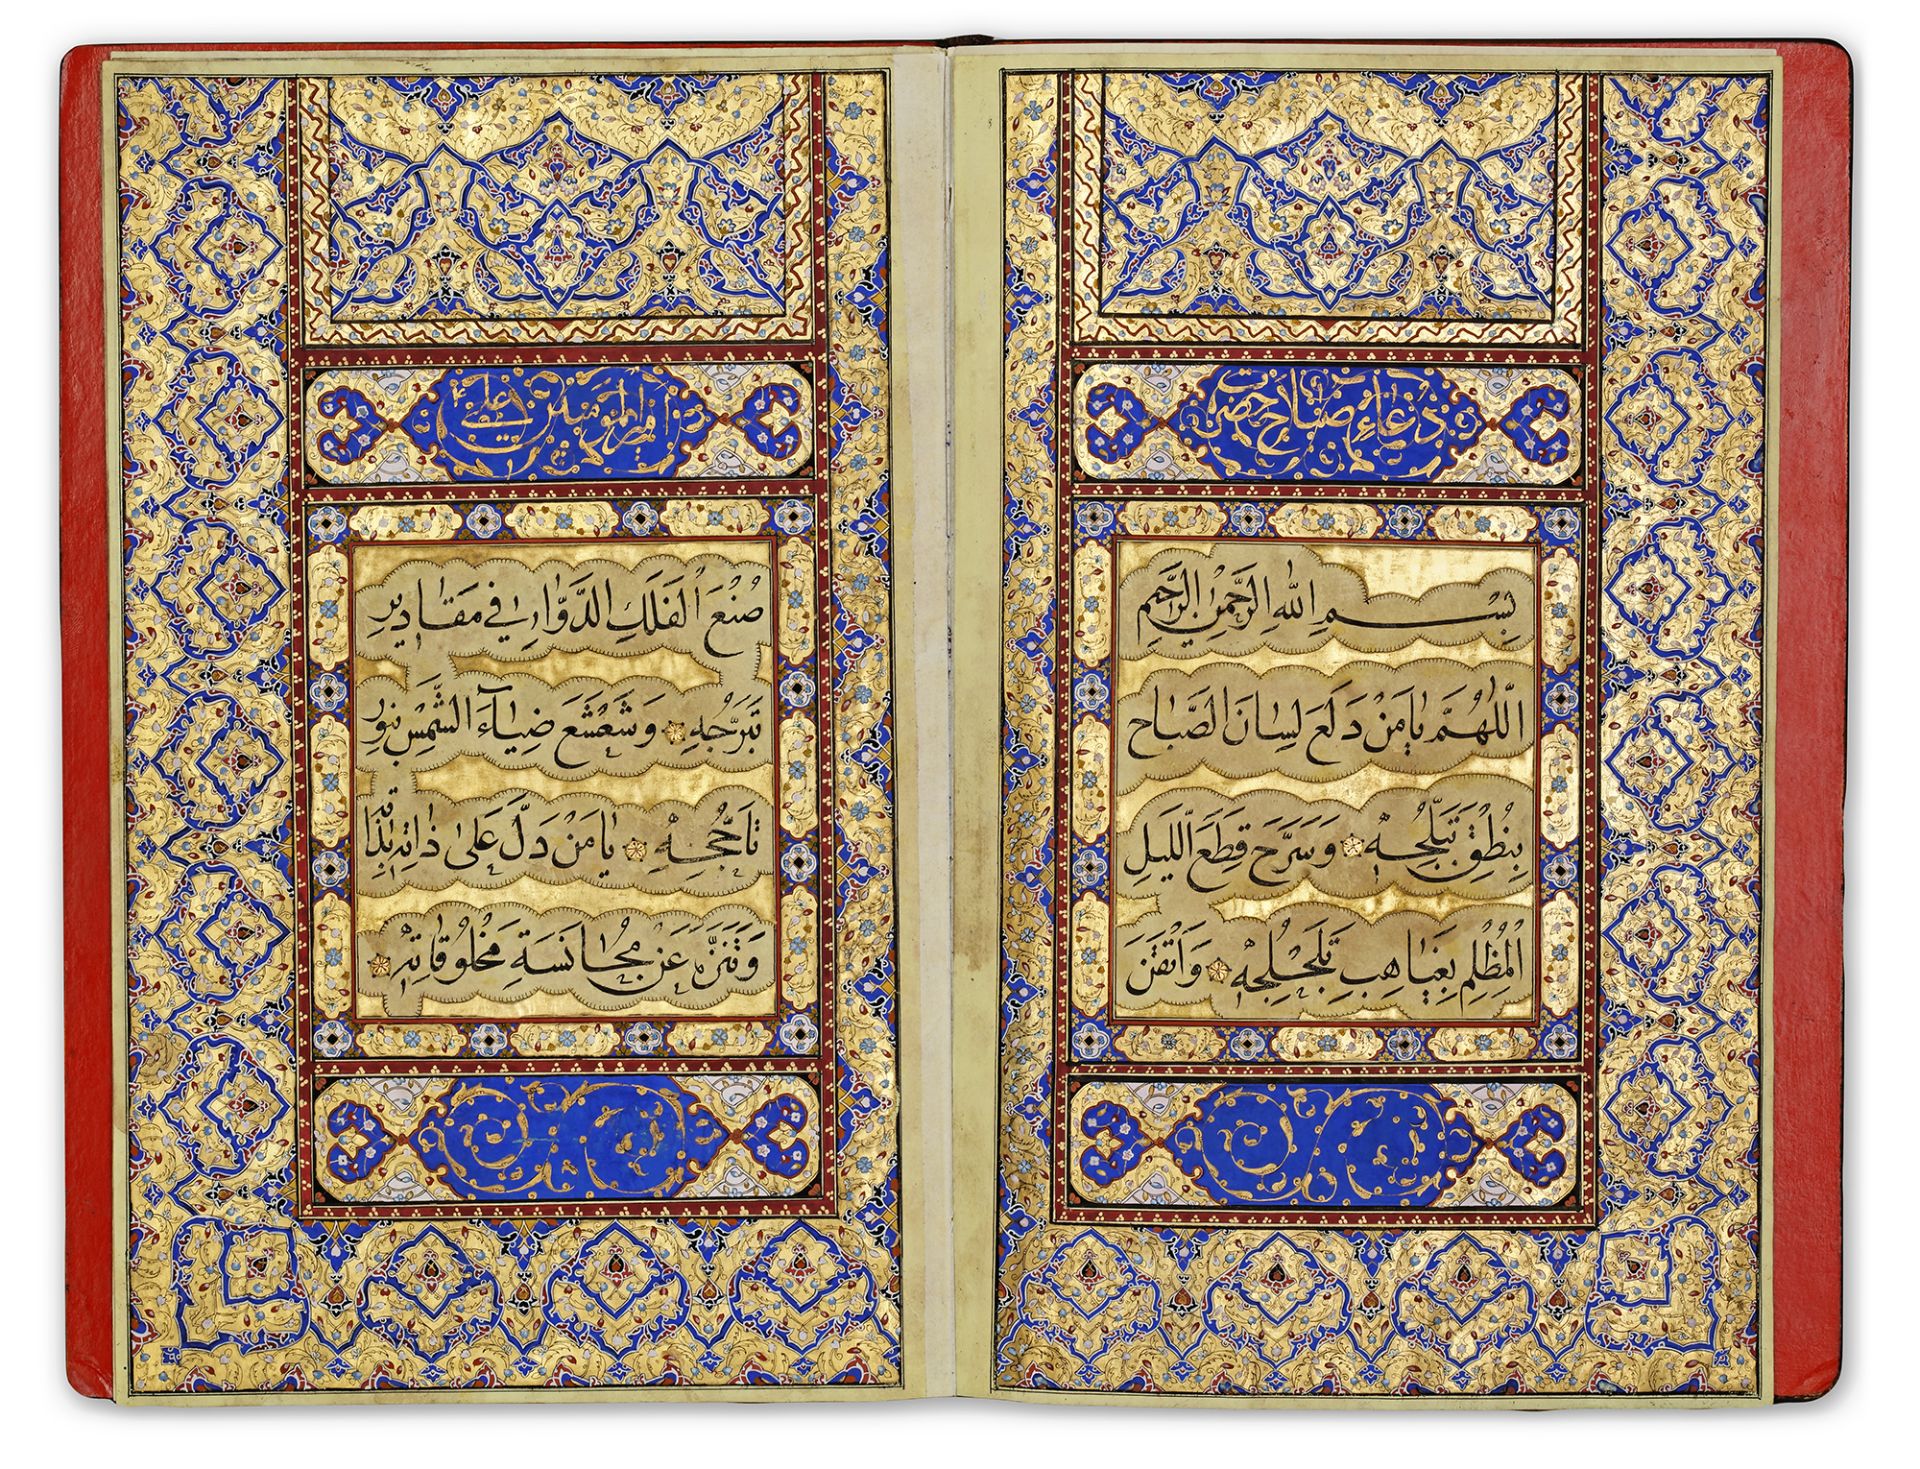 دُعَاءِ صَبَاح حضرت
بِسْمِ اللهِ الرَّحْمٰنِ الرَّحِيمِ
اَللّٰهُمَّ يَا مَنْ دَلَعَ لِسَانَ الصَّبَاحِ
بِنُطْقِ تَبَلُّجِهِ وَسَرَّحَ قِطَعَ اللَّيْلِ
الْمُظْلِمِ بِغَيَاهِبِ تَلَجْلُجِهِ وَاَتْقَنَ
اميرالمؤمنين علي
صُنْعَ الْفَلَكِ الدَّوَّارِ فِي مَقَادِيرِ
تَبَرُّجِهِ وَشَعْشَعَ ضِيَآءَ الشَّمْسِ بِنُورِ
تَاَجُّجِهِ يَا مَنْ دَلَّ عَلىٰ ذَاتِهِ بِذَاتِهِ
وَتَنَزَّهَ عَنْ مُجَانَسَةِ مَخْلُوقَاتِهِ